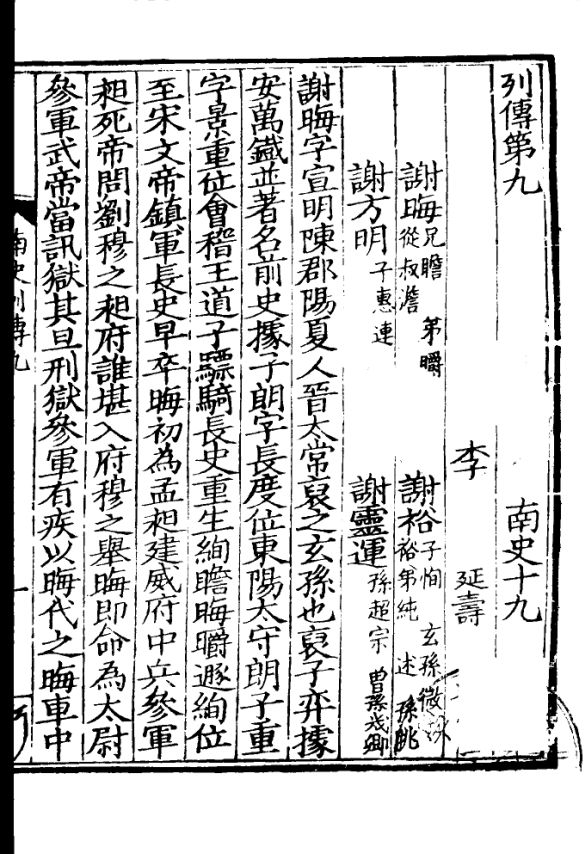 列傳第九 南史十九
李 延壽
謝晦 兄瞻 弟㬭 從叔澹 謝裕 子恂 玄孫微 裕弟純 述 孫朓
謝方明 子惠連 謝靈運 孫超宗 曾孫幾卿
謝晦字宣明陳郡陽夏人晉太常裒之玄孫也裒子弈據
安萬鐵並著名前史據子朗字長度位東陽太守朗子重
字景重位會稽王道子驃騎長史重生絢瞻晦㬭遯絢位
至宋文帝鎮軍長史早卒晦初為孟昶建威府中兵參軍
昶死帝問劉穆之昶府誰堪入府穆之舉晦即命為太尉
參軍武帝當訊獄其旦刑獄參軍有疾以晦代之晦車中
南史列傳九